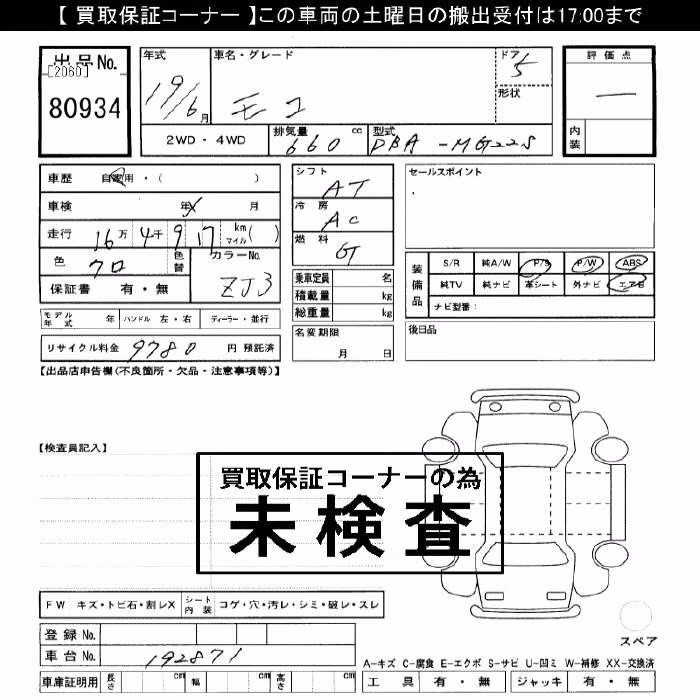 【 買取保証コーナー 】この車両の土曜日の搬出受付は17:00まで
出品No.
[2060]
80934
年式
19/6月
車名・グレード
モコ
ドア
5
形状
評価点
—
内装
2WD・4WD
排気量 660 cc
型式 DBA-MG22S
車歴 自家用・( )
車検 年 月
走行 16万4千917 km マイル( )
色 クロ 色替
カラーNo. ZJ3
保証書 有・無
シフト AT
冷房 AC
燃料 G
乗車定員 名
積載量 kg
総重量 kg
名変期限
月 日
セールスポイント
装備品
S/R 純A/W P/S P/W ABS
純TV 純ナビ 革シート 外ナビ エアB
ナビ型番:
後日品
モデル年式 年 ハンドル 左・右 ディーラー・並行
リサイクル料金 9780 円 預託済
【出品店申告欄(不良箇所・欠品・注意事項等)】
【検査員記入】
買取保証コーナーの為
未検査
FW キズ・トビ石・割レX シート内装 コゲ・穴・汚レ・シミ・破レ・スレ
登録No.
車台No. 192871
車庫証明用 長さ cm 幅 cm 高さ cm
スペア
A-キズ C-腐食 E-エクボ S-サビ U-凹ミ W-補修 XX-交換済
工具 有・無 ジャッキ 有・無